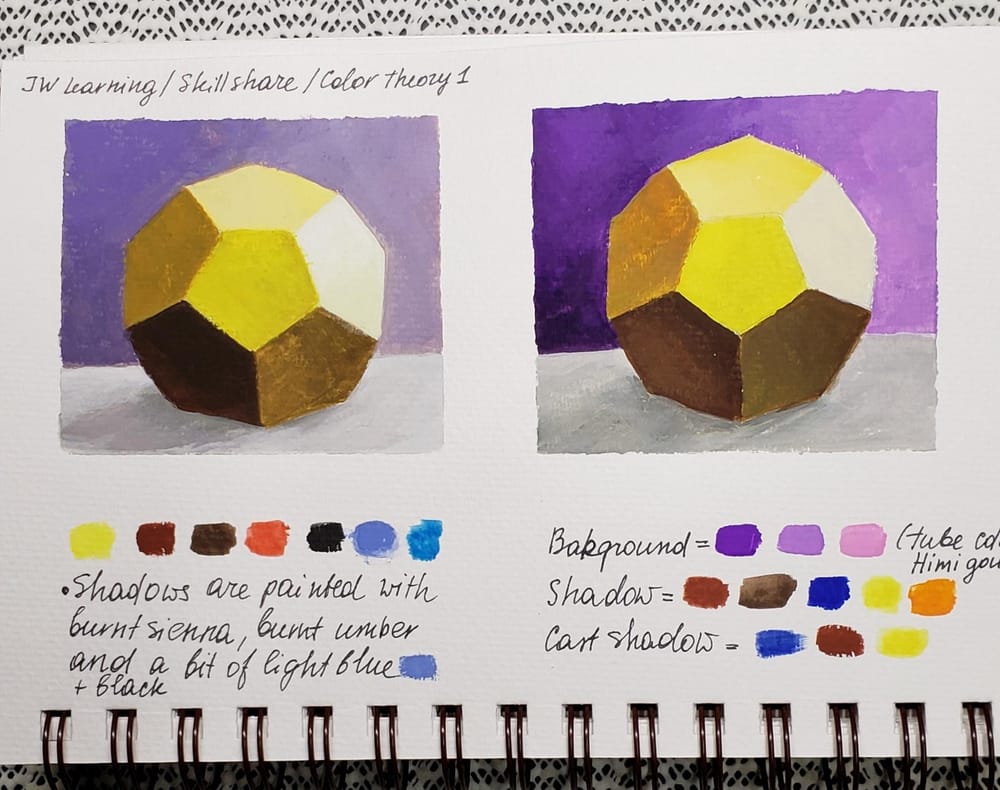 JW Learning/Skillshare/Color theory 1
•Shadows are painted with
burnt sienna, burnt umber
and a bit of light blue
+ Black
Bakground = (tube co
Himi gou
Shadow =
Cast shadow =